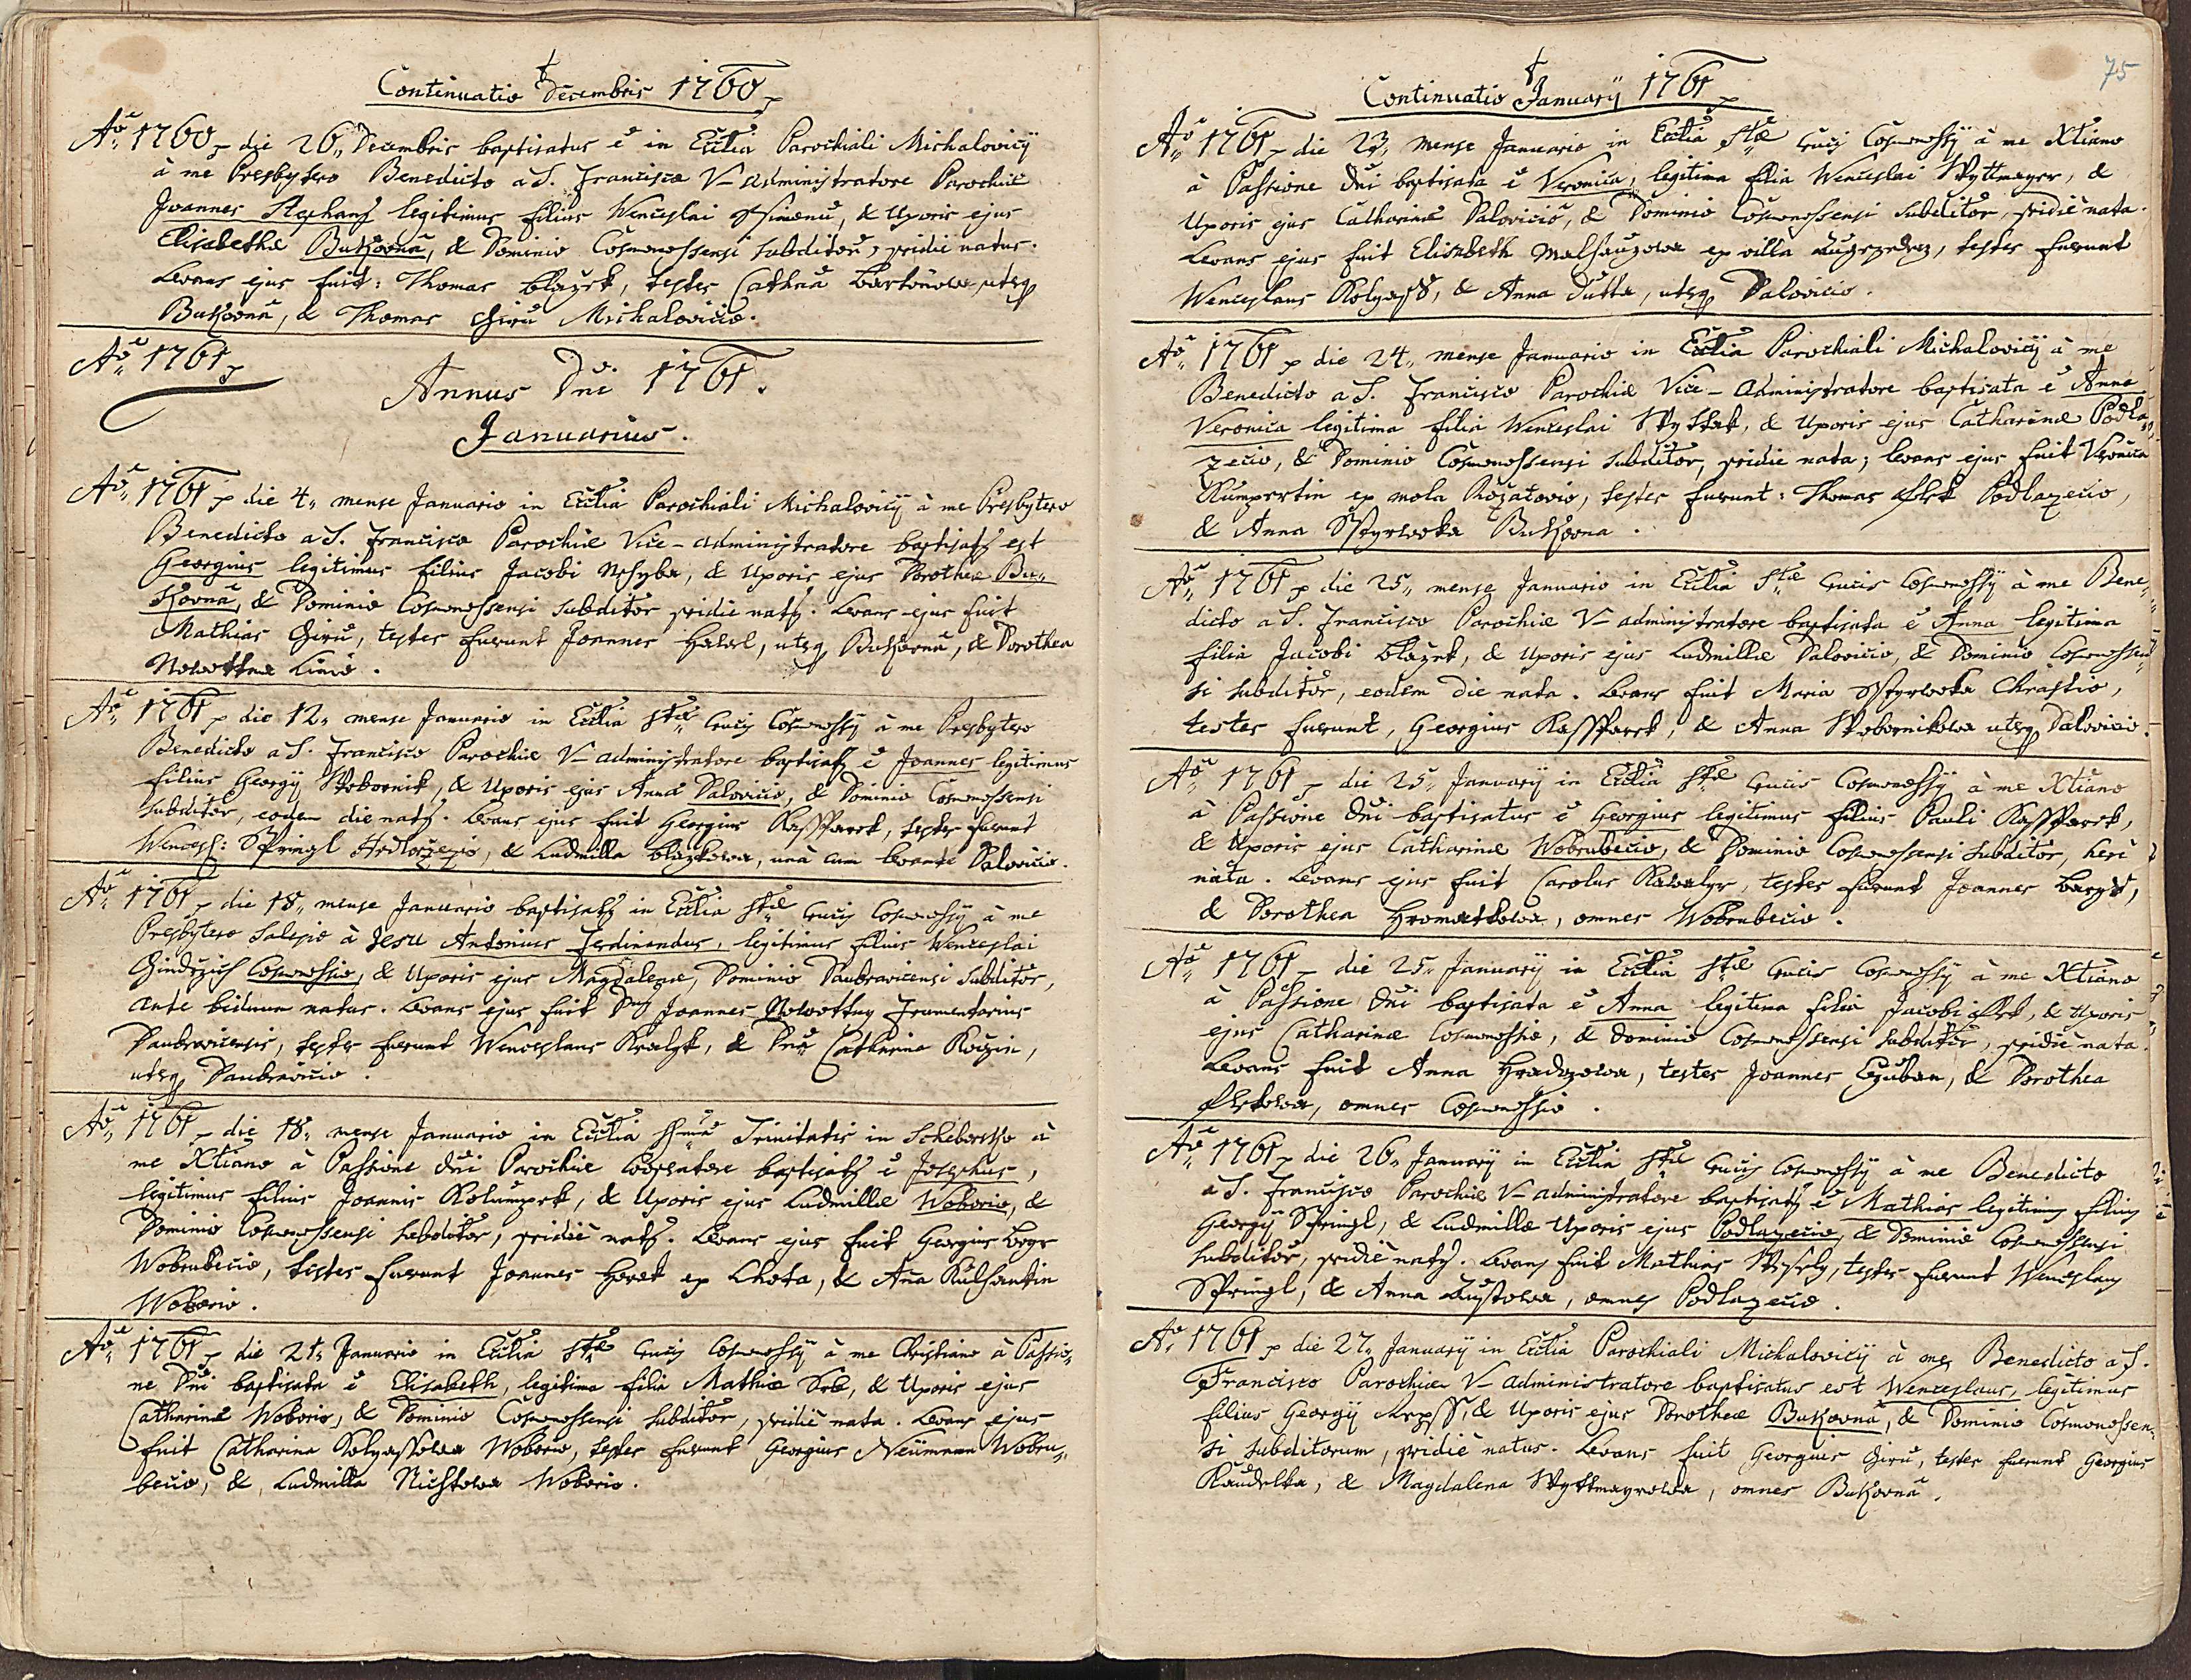 Continuatio Decembris 1760
Ao 1760 die 26 Decembris baptisatus ē in Ecclia Parochiali Michalovicij
à me Presbytero Benedicto a S. Francisco V-administratore Parochiæ
Joannes Stephanus legitimus filius Wenceslai & Uxoris ejus
Elisabethæ Bukovna, & Dominio Cosmonossensi subditor, pridie natus.
Levans ejus fuit: Thomas Blazek, testes Cathna Bartonowa, utrq
Bukovna, & Thomas Giru Michalovicio.
Ao 1761
Annus Dni 1761.
Januarius.
Ao 1761 die 4 mense Januario in Ecclia Parochiali Michalovicij à me Presbytero
Benedicto a S. Francisco Parochiæ Vice-administratore baptisatus est
Georgius legitimus filius Jacobi & Uxoris ejus Dorotheæ Bu-
kovna, & Dominio Cosmonossensi subditor pridie natus. Levans ejus fuit
Mathias Giru, testes fuerunt Joannes Hawel, utrq Bukovna, & Dorothea
Nowottna
Ao 1761 die 12 mense Januario in Ecclia Stæ Crucis Cosmonossij à me Presbytero
Benedicto a S. Francisco Parochiæ V-administratore baptisatus ē Joannes legitimus
filius Georgij Wobornik, & Uxoris ejus Annæ Dalovicio, & Dominio Cosmonossensi
subditor, eodem die natus. Levans ejus fuit Georgius Kassparek, testes fuerunt
Wencesl: Springl & Ludmilla Blazkowa, unà cum levante Dalovicio.
Ao 1761 die 18 mense Januario baptisatus in Ecclia Stæ Crucis Cosmonossij à me
Presbytero Salesio à Jesu Antonius Ferdinandus, legitimus filius Wenceslai
Gindrzich Cosmonossio, & Uxoris ejus Magdalenæ, Dominio Daubravicensi subditor,
ante biduum natus. Levans ejus fuit Dnus Joannes Nowottny Frumentarius
Daubravicensis, testes fuerunt Wenceslaus Kralyk, & Dna Catharina
utrq Daubravicio.
Ao 1761 die 18 mense Januario in Ecclia SSmæ Trinitatis in Scheborstho à
me Xtiano à Passione Dni Parochiæ Cooperatore baptisatus ē Josephus,
legitimus filius Joannis & Uxoris ejus Ludmillæ Woborio, &
Dominio Cosmonossensi subditor, pridie natus. Levans ejus fuit Georgius
Wobrubecio, testes fuerunt Joannes ex Lhota, & Aña
Woborio.
Ao 1761 die 21 Januario in Ecclia Stæ Crucis Cosmonossij à me Christiano à Passio-
ne Dni baptisata ē Elisabeth, legitima filia Mathiæ Srb, & Uxoris ejus
Catharinæ Woborio, & Dominio Cosmonossensi subditor, pridie nata. Levans ejus
fuit Catharina Woborio, testes fuerunt Georgius Neümann Wobru-
becio, & Ludmilla Woborio.
75
Continuatio Januarij 1761
Ao 1761 die 23 mense Januario in Ecclia Stæ Crucis Cosmonossij à me Xtiano
à Passione Dni baptisata ē Veronica, legitima filia Wenceslai Wyttmayer, &
Uxoris ejus Catharinæ Dalovicio, & Dominio Cosmonossensi subditor, pridie nata.
Levans ejus fuit Elisabeth ex villa testes fuerunt
Wenceslaus & Anna Dutta, utrq Dalovicio.
Ao 1761 die 24 mense Januario in Ecclia Parochiali Michalovicij à me
Benedicto a S. Francisco Parochiæ Vice-administratore baptisata ē Anna
Veronica legitima filia Wenceslai & Uxoris ejus Catharinæ Podla-
zecio, & Dominio Cosmonossensi subditor, pridie nata; levans ejus fuit Veronica
Rumpertin ex mola testes fuerunt: Thomas Podlazecio,
& Anna Bukovna.
Ao 1761 die 25 mense Januario in Ecclia Stæ Crucis Cosmonossij à me Bene-
dicto a S. Francisco Parochiæ V-administratore baptisata ē Anna legitima
filia Jacobi Blazek, & Uxoris ejus Ludmillæ Dalovicio, & Dominio Cosmonossen-
si subditor, eodem die nata. Levans fuit Maria Chrastio,
testes fuerunt, Georgius Kassparek, & Anna Wobornikowa utrq Dalovicio.
Ao 1761 die 25 Januarij in Ecclia Stæ Crucis Cosmonossij à me Xtiano
à Passione Dni baptisatus ē Georgius legitimus filius Pauli Kassparek,
& Uxoris ejus Catharinæ Wobrubecio, & Dominio Cosmonossensi subditor, heri
nata. Levans ejus fuit Carolus Kawalyr, testes fuerunt Joannes
& Dorothea Hromatkowa, omnes Wobrubecio.
Ao 1761 die 25 Januarij in Ecclia Stæ Crucis Cosmonossij à me Xtiano
à Passione Dni baptisata ē Anna legitima filia Jacobi & Uxoris
ejus Catharinæ Cosmonossio, & Dominio Cosmonossensi subditor, pridie nata.
Levans fuit Anna Hradzowa, testes Joannes & Dorothea
omnes Cosmonossio.
Ao 1761 die 26 Januarij in Ecclia Stæ Crucis Cosmonossij à me Benedicto
a S. Francisco Parochiæ V-administratore baptisatus ē Mathias legitimus filius
Georgij Springl, & Ludmillæ Uxoris ejus Podlazecio, & Dominio Cosmonossensi
subditor, pridie natus. Levans fuit Mathias Wesely, testes fuerunt Wenceslaus
Springl, & Anna omnes Podlazecio.
Ao 1761 die 27 Januarij in Ecclia Parochiali Michalovicij à me Benedicto a S.
Francisco Parochiæ V-administratore baptisatus est Wenceslaus, legitimus
filius Georgij & Uxoris ejus Dorotheæ Bukovna, & Dominio Cosmonossen-
si subditorum, pridie natus. Levans fuit Georgius Giru, testes fuerunt Georgius
Kaudelka, & Magdalena Wyttmayrowa, omnes Bukovna.